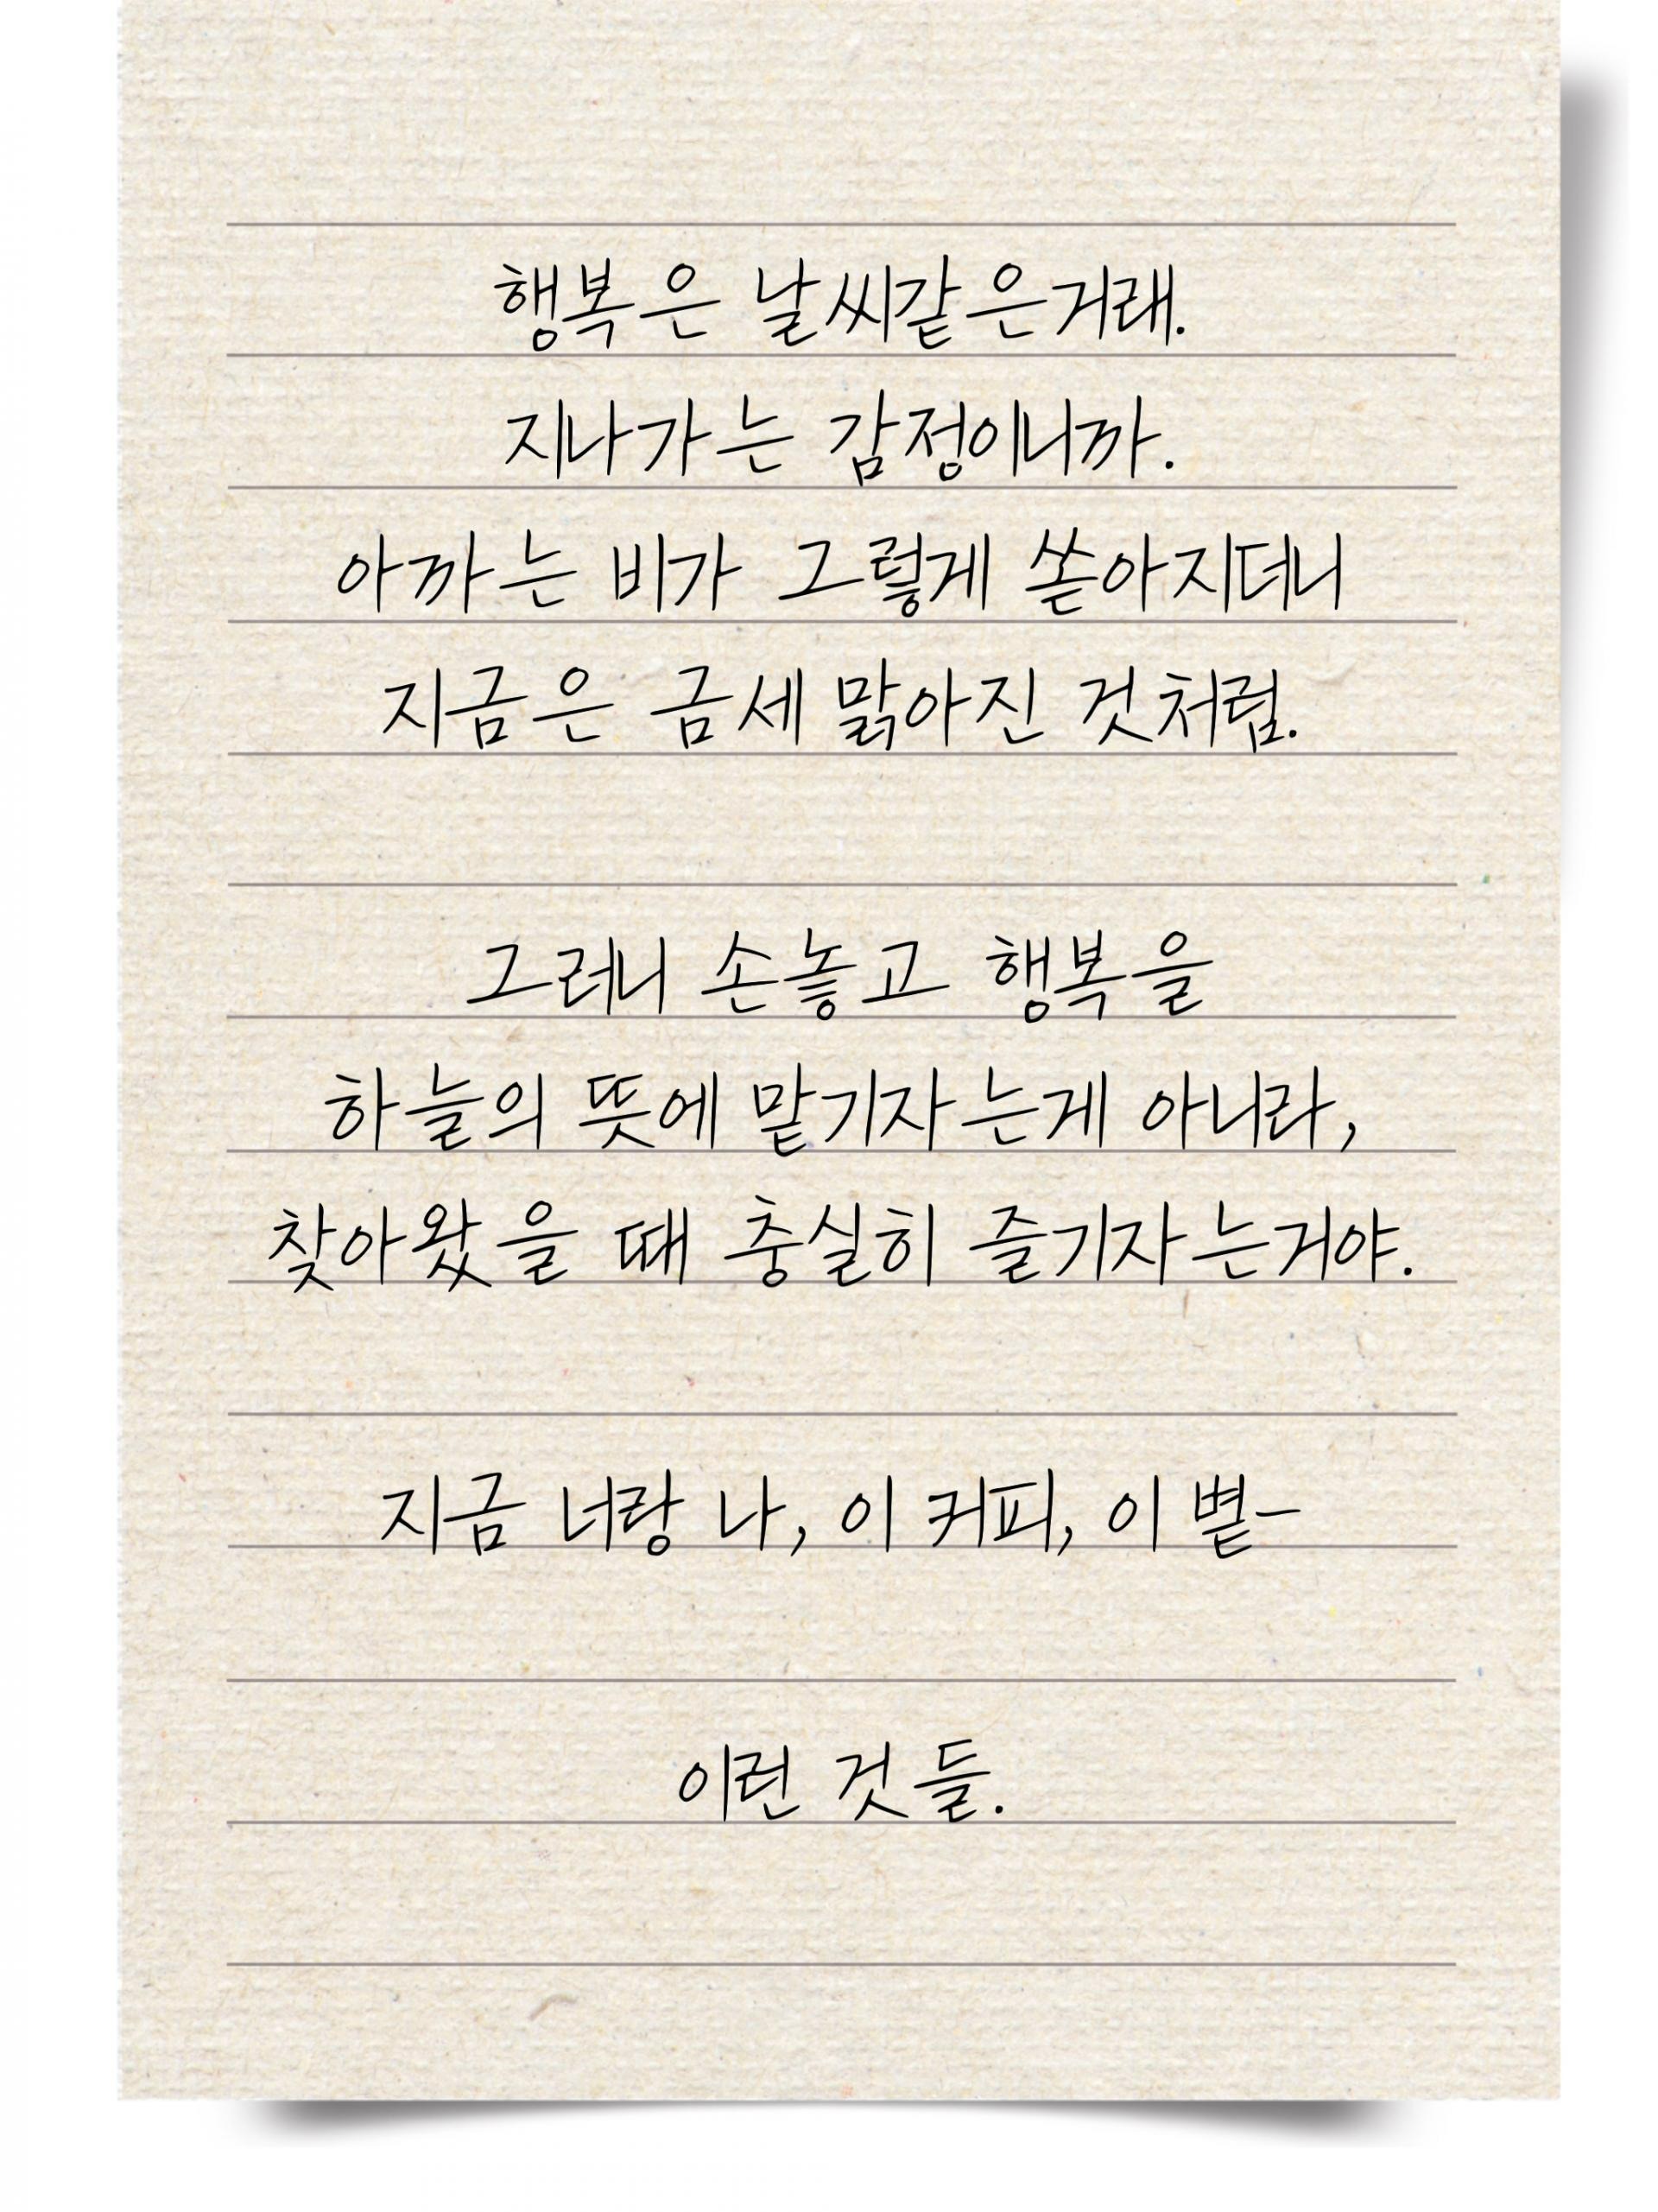 행복은 날씨같은거래.
지나가는 감정이니까.
아까는 비가 그렇게 쏟아지더니
지금은 금세 맑아진 것처럼.
그러니 손놓고 행복을
하늘의 뜻에 맡기자는게 아니라,
찾아왔을 때 충실히 즐기자는거야.
지금 너랑 나, 이 커피, 이 볕-
이런 것들.